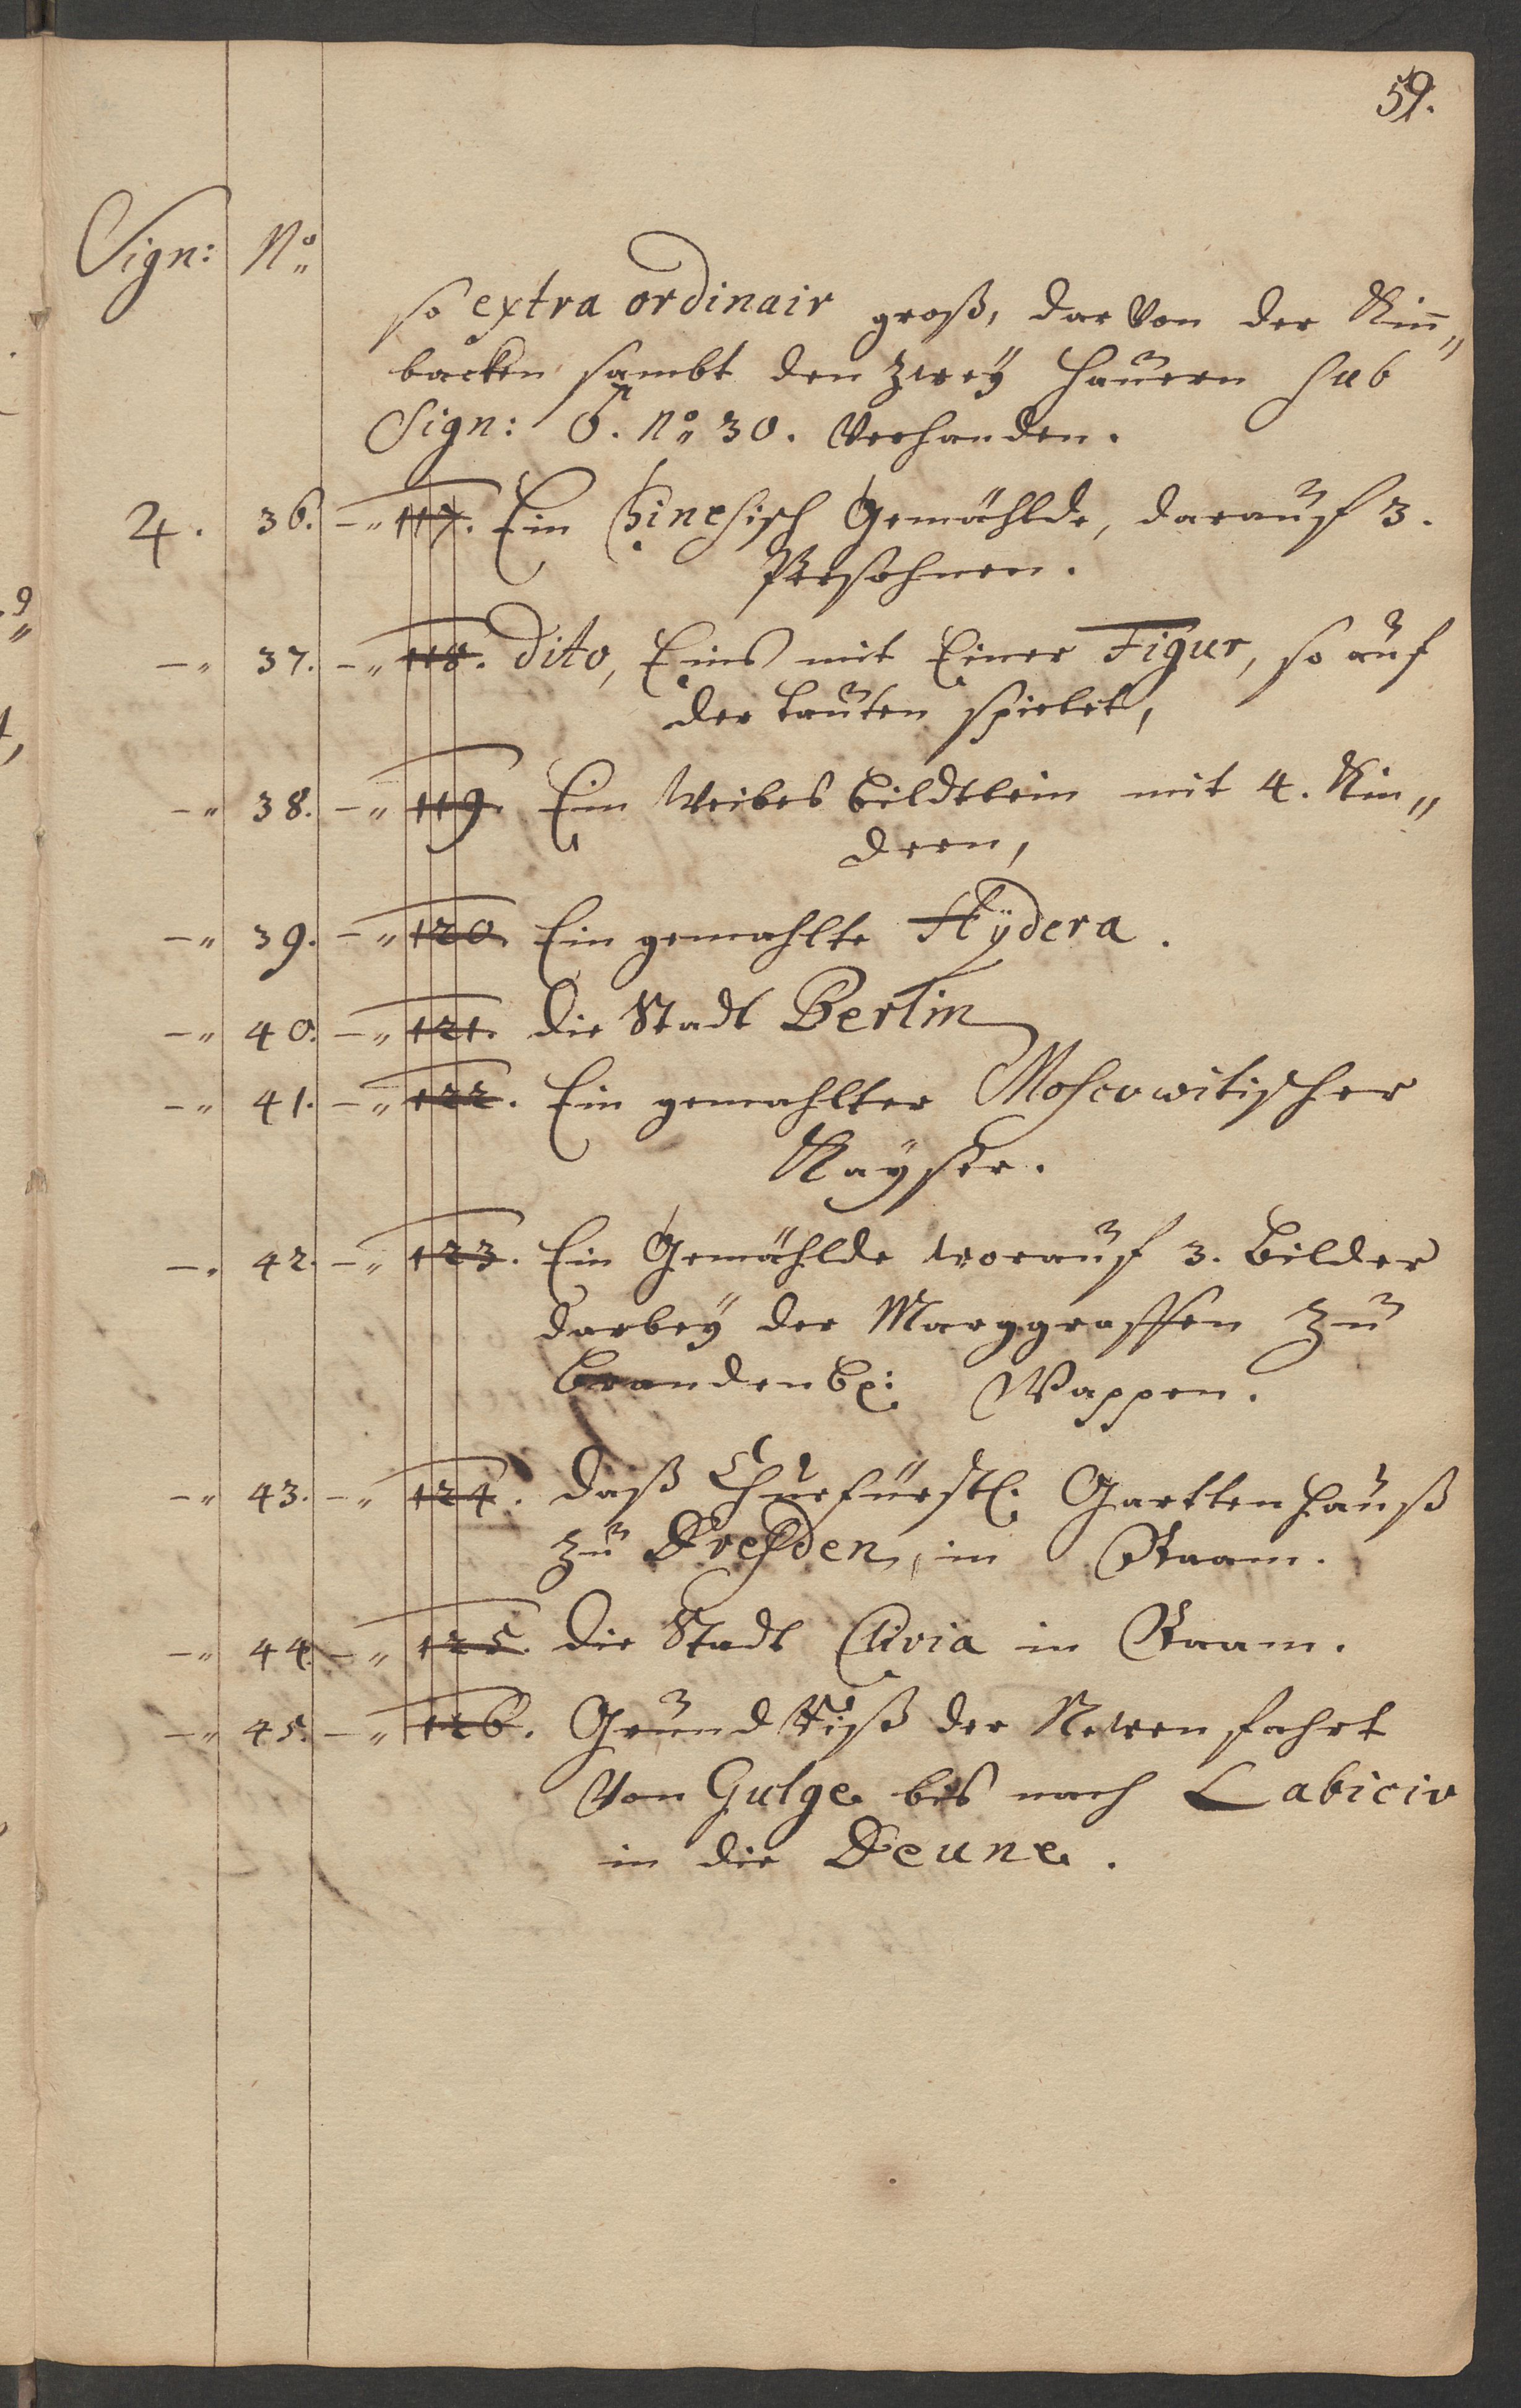 59.
Sign: No
so extra ordinair groß, dar von der Kin„
backen sambt den zweÿ Hauern sub
Sign: No 30. Verhanden.
4. 36. -„ 117. Ein Chinesisch Gemählde, darauf 3.
Persohnen.
-„ 37. -„ 118. dito, Eins mit Einer Figur, so auf
der lauten spielet,
-„ 38. -„ 119 Ein Weibes bildtlein mit 4. Kin„
dern,
-„ 39. -„ 120. Ein gemahlte Hÿdera.
-„ 40. -„ 121. die Stadt Berlin
-„ 41. -„ 122. Ein gemahlter Moscowitischer
Kaÿser.
-„ 42. -„ 123. Ein Gemählde worauf 3. bilder
darbeÿ der Marggraffen zu
brandenb: Wappen.
-„ 43. -„ 124. daß Churfürstl: Gartten hauß
zu Dresden, in Raam.
-„ 44. -„ 125. die Stadt Clivia in Raam.
-„ 45. -„ 126. Grund Riß der Newen fahrt
Von Gulge bis nach Labiciv
in die Deune.